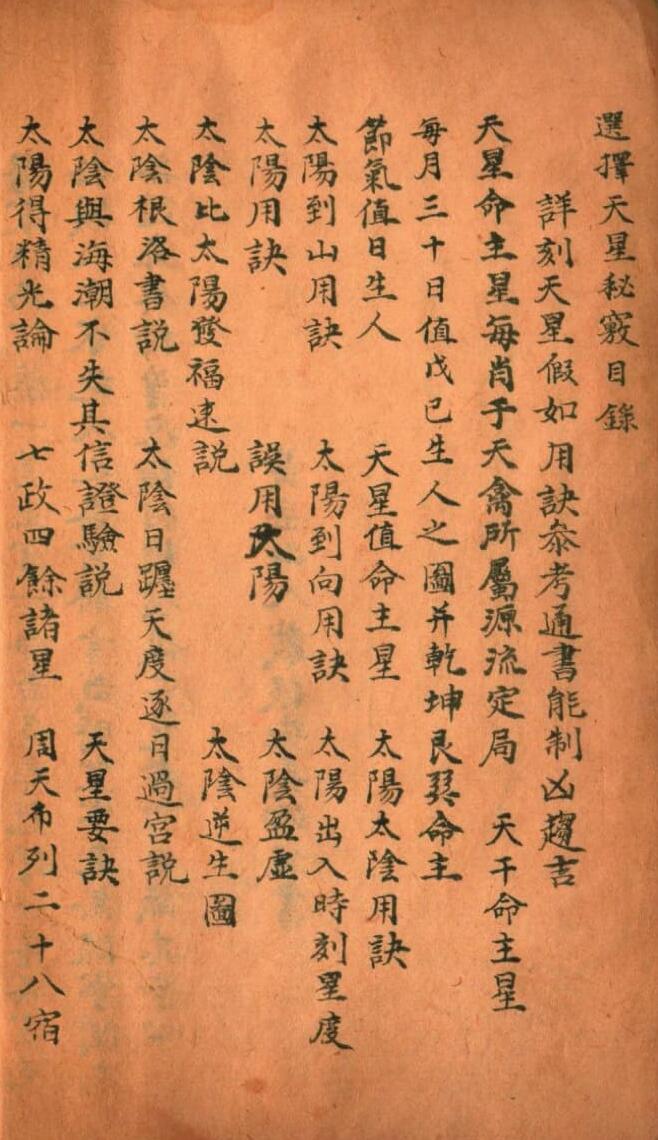 選擇天星秘竅目錄
詳刻天星假如用訣叅考通書能制凶趨吉
天星命主星每肖于天禽所屬源流定局 天干命主星
每月三十日值戊己生人之圖并乾坤艮巽命主
節氣值日生人 天星值命主星 太陽太陰用訣
太陽到山用訣 太陽到向用訣 太陽出入時刻星度
太陽用訣 誤用太陽 太陰盈虛
太陰比太陽發福速説 太陰逆生圖
太陰根洛書説 太陰日躔天度逐日過宮説
太陰與海潮不失其信證驗説 天星要訣
太陽得精光論 七政四餘諸星 周天布列二十八宿